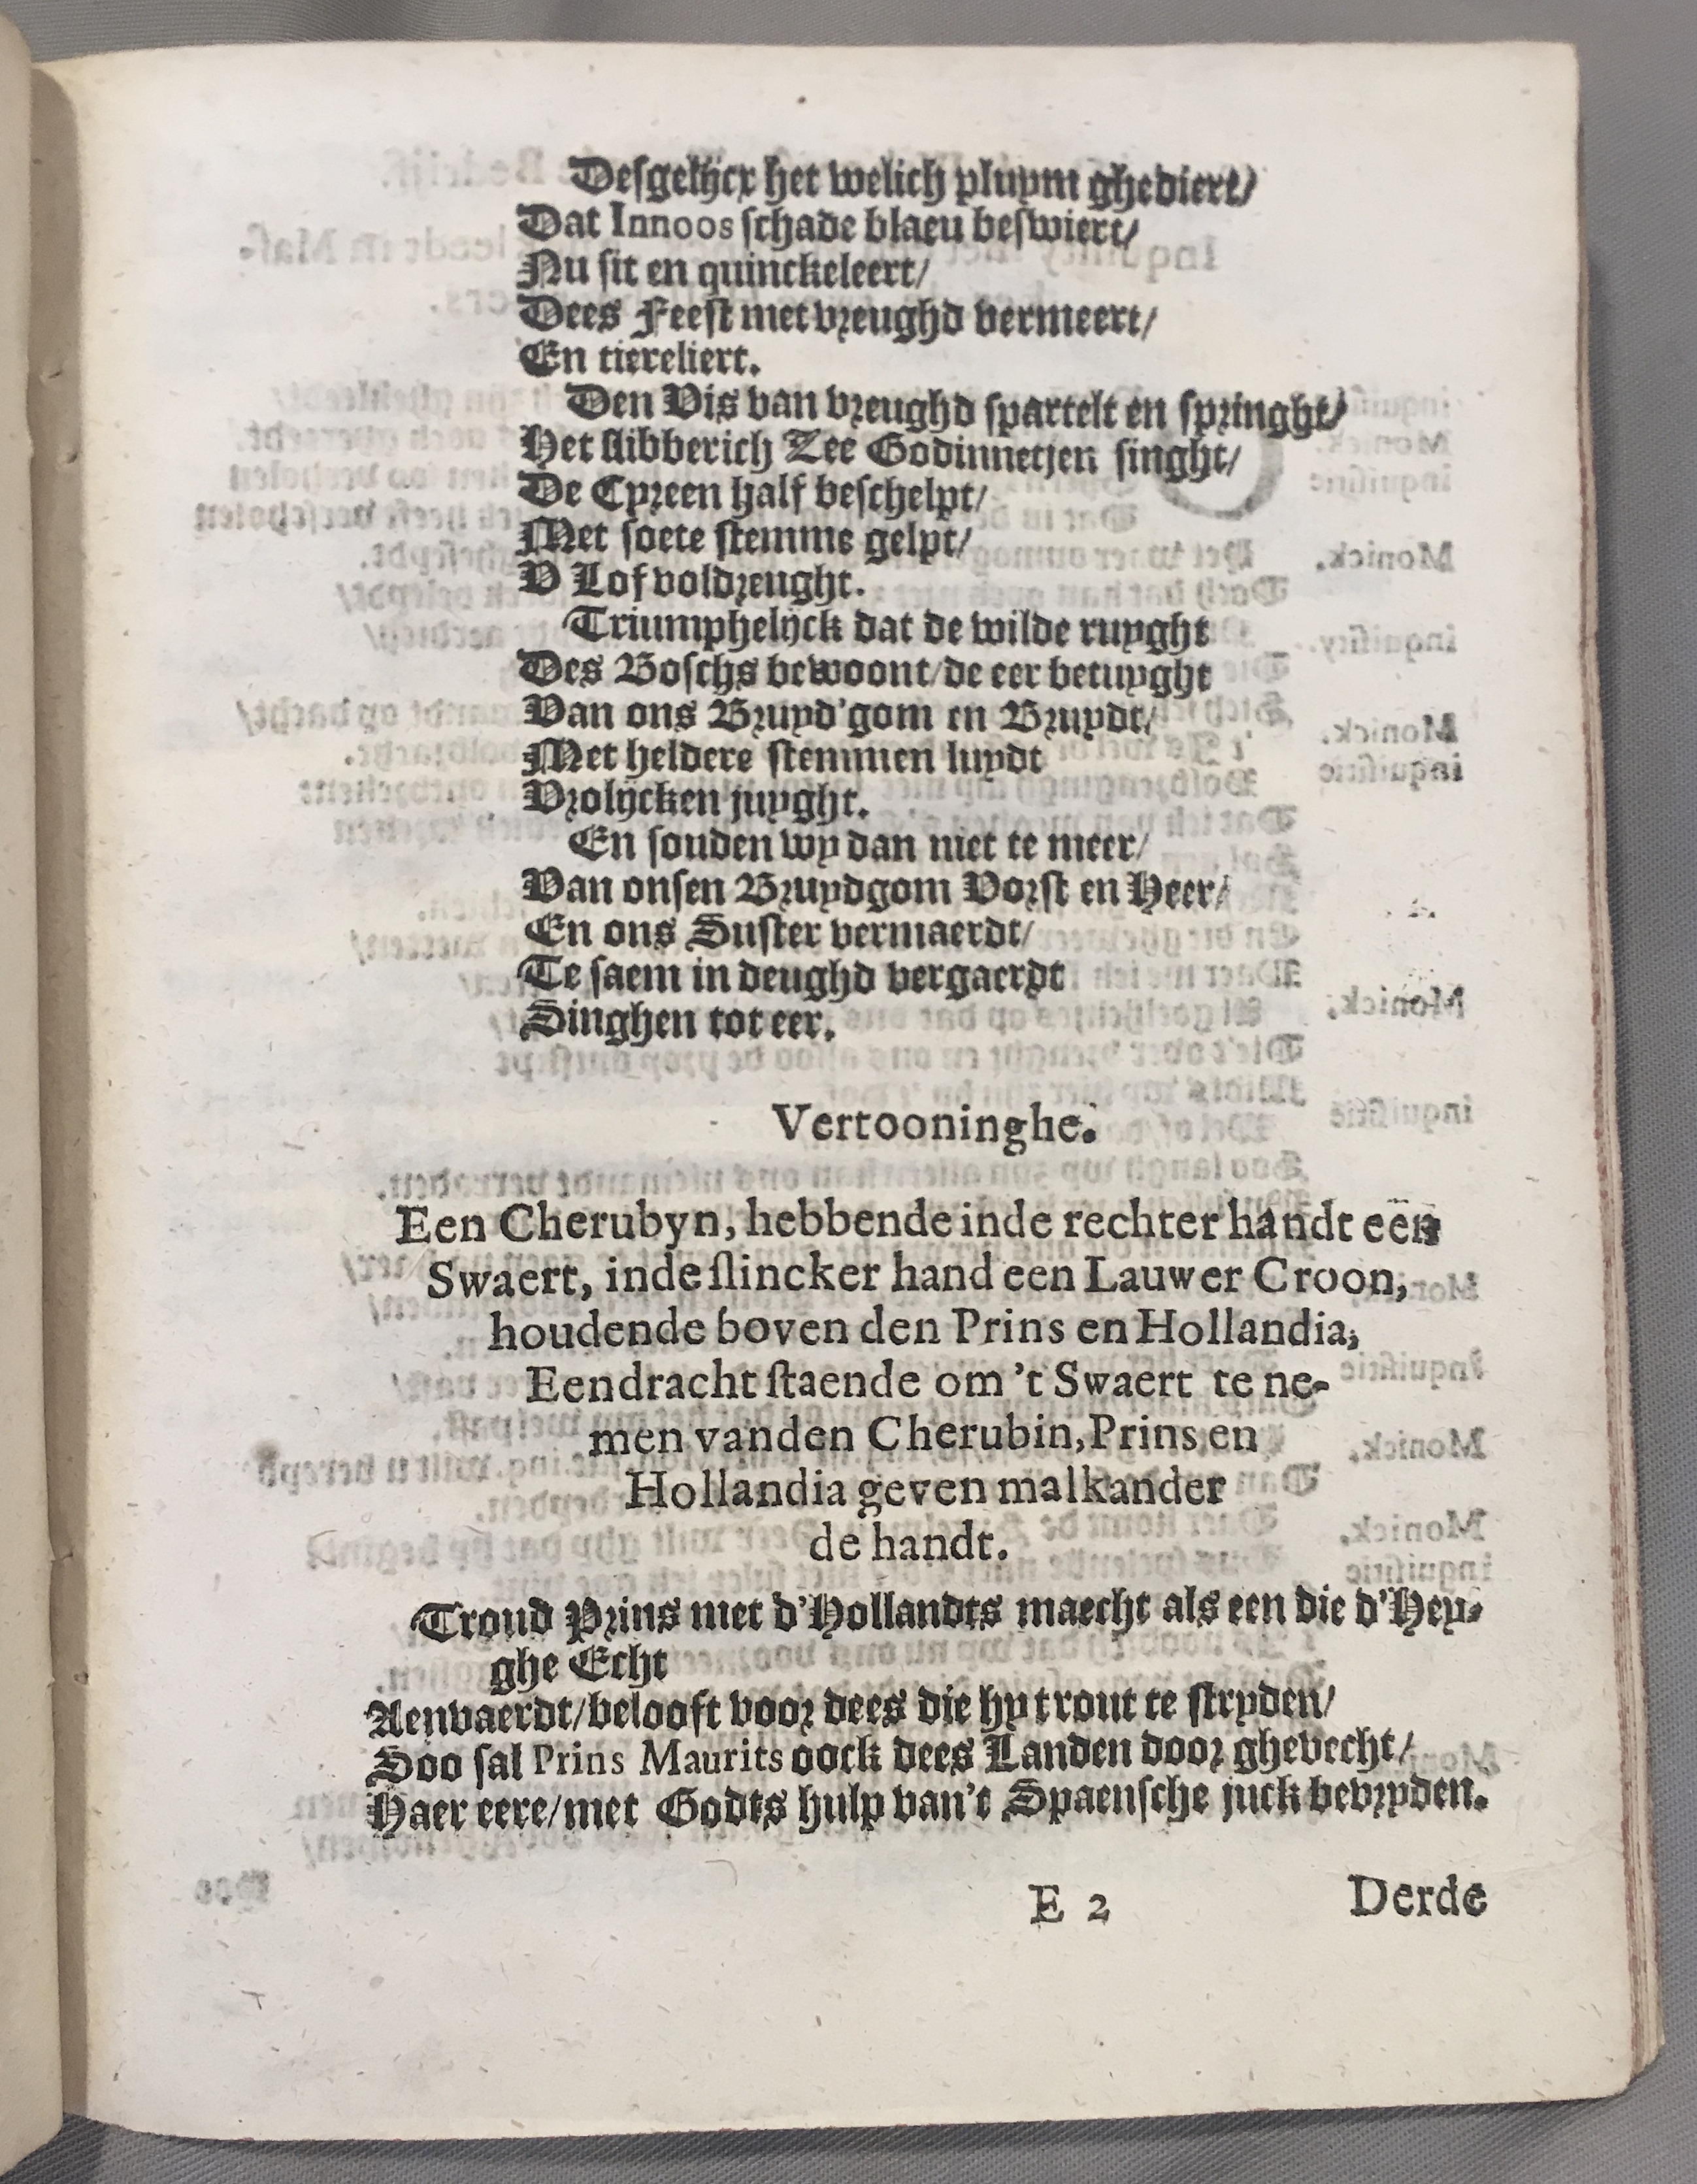 Desgelijcx het welich pluym ghediert/
Dat Innoos schade blaeu beswiert/
Nu sit en quinckeleert/
Dees Feest met vreughd vermeert/
En tiereliert.
Den Vis van vreughd spartelt en springht/
Het slibberich Zee Godinnetjen singht/
De Cyreen half beschelpt/
Met soete stemme gelpt/
V Lof voldreught.
Triumphelijck dat de wilde ruyght
Des Boschs bewoont/de eer betuyght
Van ons Bruyd'gom en Bruydt/
Met heldere stemmen luydt
Vrolijcken juyght.
En souden wy dan niet te meer/
Van onsen Bruydgom Vorst en Heer/
En ons Suster vermaerdt/
Te saem in deughd vergaerdt
Singhen tot eer.
Vertooninghe.
Een Cherubyn, hebbende inde rechter handt een
Swaert, inde slincker hand een Lauwer Croon,
houdende boven den Prins en Hollandia,
Eendracht staende om 't Swaert te ne-
men vanden Cherubin, Prins en
Hollandia geven malkander
de handt.
Troud Prins met d'Hollandts maecht als een die d'Hey-
ghe Echt
Aenvaerdt/belooft voor dees die hy trout te stryden/
Soo sal Prins Maurits oock dees Landen door ghevecht/
Haer eere/met Godts hulp van't Spaensche juck bevryden.
E 2
Derde